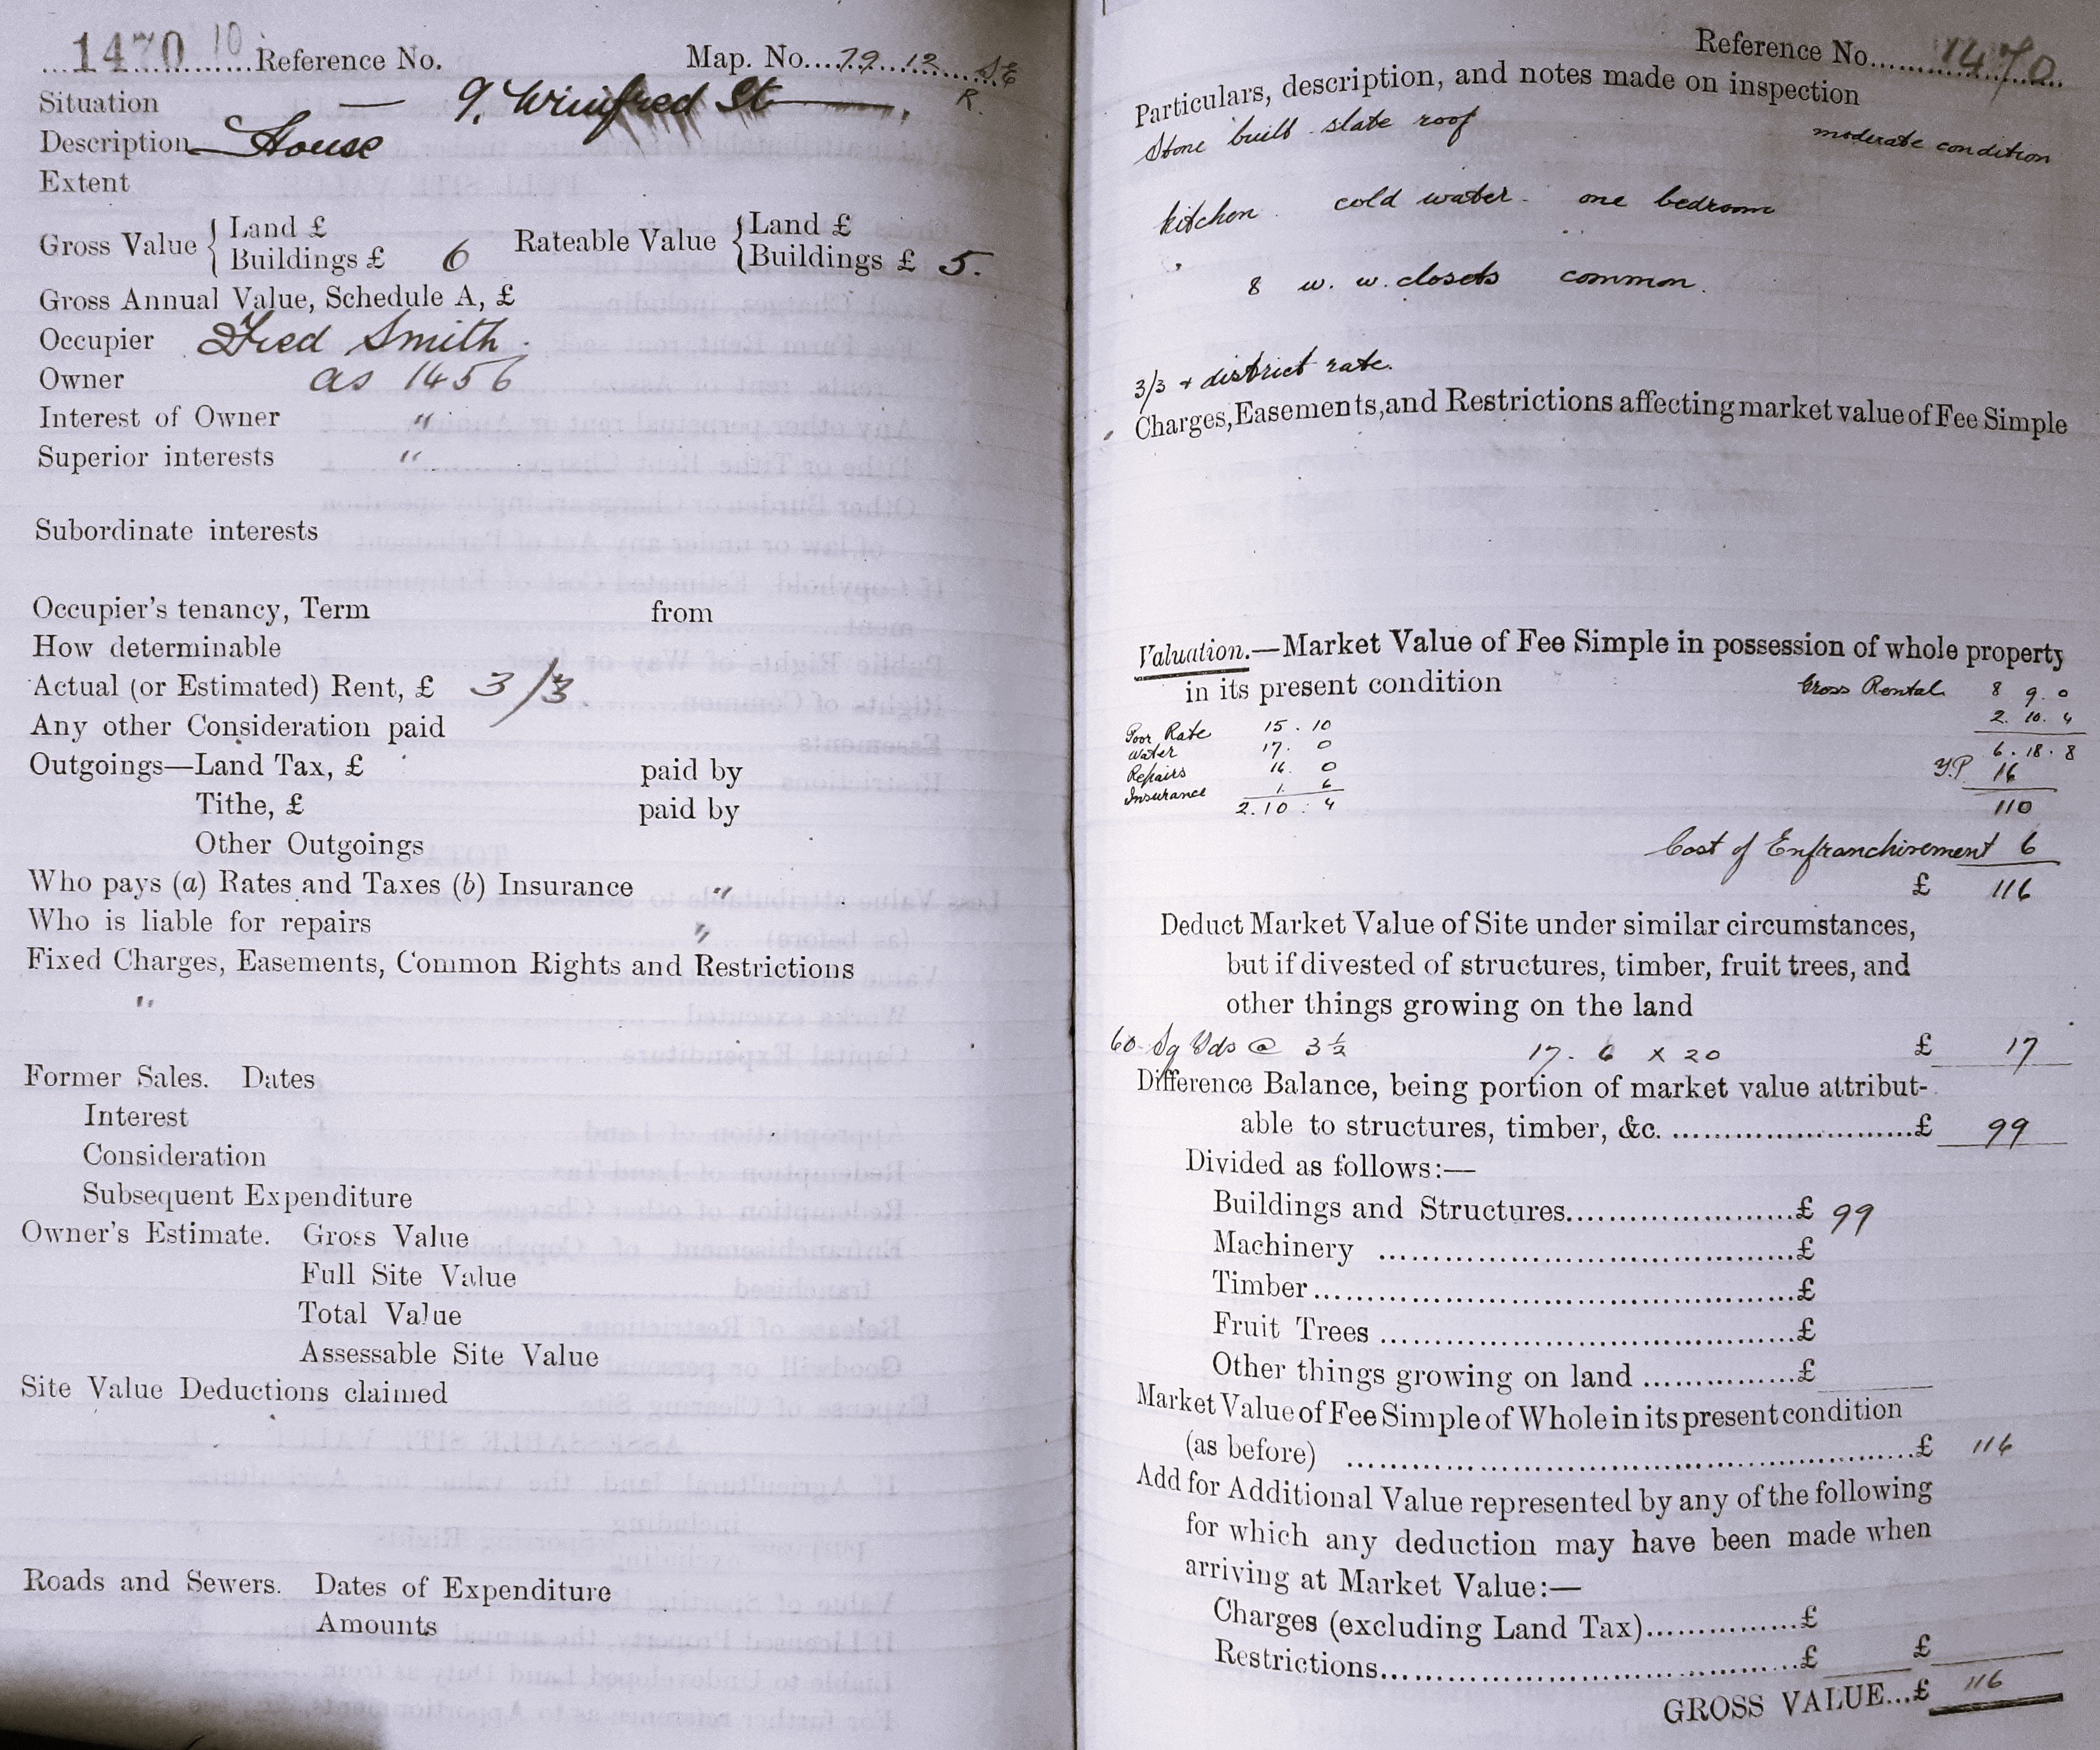 1470 10 Reference No. Map. No. 79. 12 S.E
R.
Situation — 9, Winifred St
Description House
Extent
Gross Value { Land £
Buildings £ 6
Rateable Value { Land £
Buildings £ 5.
Gross Annual Value, Schedule A, £
Occupier Fred Smith.
Owner as 1456
Interest of Owner "
Superior interests "
Subordinate interests
Occupier's tenancy, Term from
How determinable
Actual (or Estimated) Rent, £ 3/3.
Any other Consideration paid
Outgoings—Land Tax, £ paid by
Tithe, £ paid by
Other Outgoings
Who pays (a) Rates and Taxes (b) Insurance "
Who is liable for repairs "
Fixed Charges, Easements, Common Rights and Restrictions
"
Former Sales. Dates
Interest
Consideration
Subsequent Expenditure
Owner's Estimate. Gross Value
Full Site Value
Total Value
Assessable Site Value
Site Value Deductions claimed
Roads and Sewers. Dates of Expenditure
Amounts
Reference No. 1470
Particulars, description, and notes made on inspection
Stone built slate roof moderate condition
kitchen. cold water. one bedroom
8 w. w. closets common.
3/3 + district rate.
Charges, Easements, and Restrictions affecting market value of Fee Simple
Valuation.—Market Value of Fee Simple in possession of whole property
in its present condition
Gross Rental 8 9. 0
2. 10. 4
6. 18. 8
Y.P. 16
110
Poor Rate 15. 10
Water 17. 0
Repairs 16. 0
Insurance 1. 6
2. 10. 4
Cost of Enfranchisement 6
£ 116
Deduct Market Value of Site under similar circumstances,
but if divested of structures, timber, fruit trees, and
other things growing on the land
60 Sq Yds @ 3½ 17. 6 x 20 £ 17
Difference Balance, being portion of market value attribut-
able to structures, timber, &c. £ 99
Divided as follows:—
Buildings and Structures £ 99
Machinery £
Timber £
Fruit Trees £
Other things growing on land £
Market Value of Fee Simple of Whole in its present condition
(as before) £ 116
Add for Additional Value represented by any of the following
for which any deduction may have been made when
arriving at Market Value:—
Charges (excluding Land Tax) £
Restrictions £ £
GROSS VALUE... £ 116